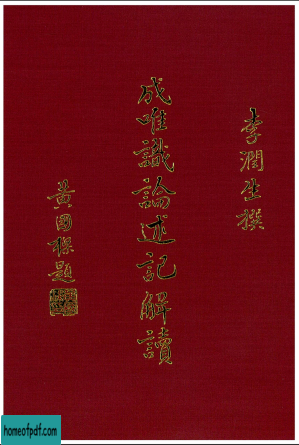 李潤生撰
成唯識論述記解讀
黃國㷫題
homeofpdf.com